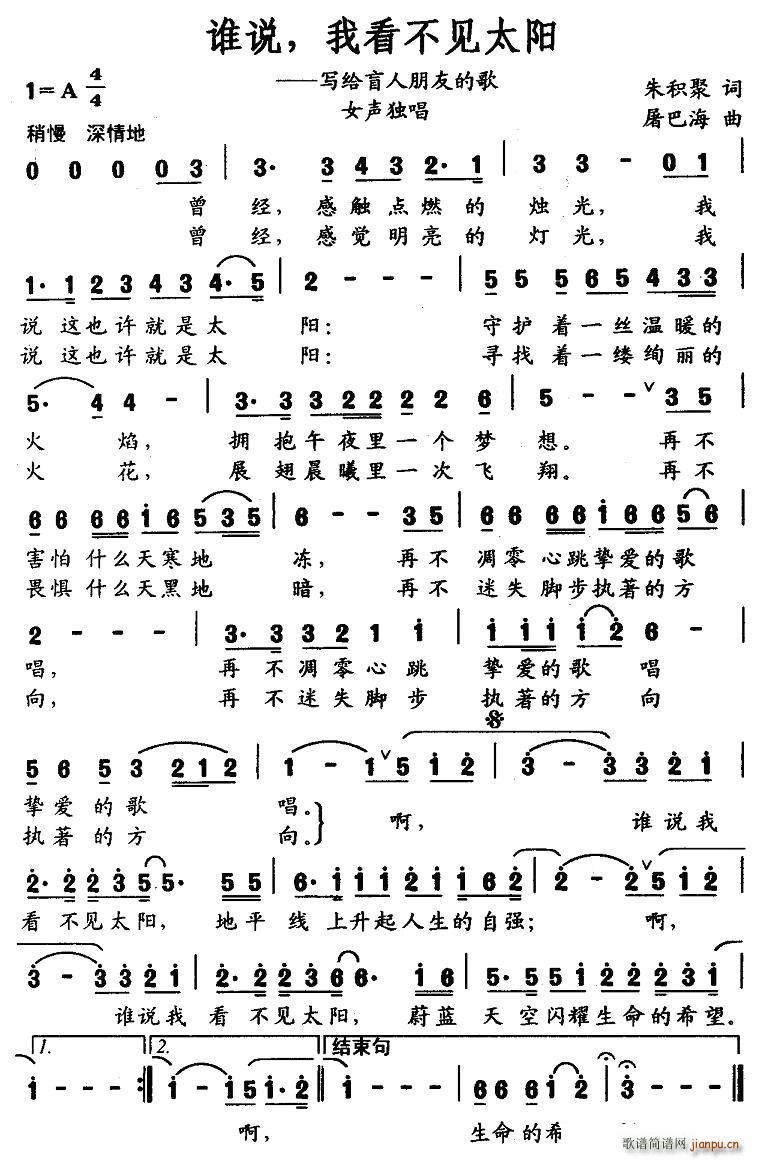 谁说，我看不见太阳
——写给盲人朋友的歌
女声独唱
朱积聚 词
屠巴海 曲
1=A 4/4
稍慢 深情地
0 0 0 0 3 | 3· 3 4 3 2· 1 | 3 3 - 0 1 |
曾 经，感 触 点 燃 的 烛 光，我
曾 经，感 觉 明 亮 的 灯 光，我
1· 1 2 3 4 3 4· 5 | 2 - - - | 5 5 5 6 5 4 3 3 |
说 这也许就是太 阳： 守护着一丝温暖的
说 这也许就是太 阳： 寻找着一缕绚丽的
5· 4 4 - | 3· 3 3 2 2 2 2 6 | 5 - - ∨ 3 5 |
火 焰，拥 抱午夜里一个梦 想。再不
火 花，展 翅晨曦里一次飞 翔。再不
6 6 6 6 6 i 6 5 3 5 | 6 - - 3 5 | 6 6 6 6 6 i 6 5 6 |
害怕 什么天寒地 冻，再不 凋零 心跳挚爱的歌
畏惧 什么天黑地 暗，再不 迷失 脚步执著的方
2 - - - | 3· 3 3 2 1 i | i i i i 2 6 - |
唱，再 不凋零心跳 挚爱的歌 唱
向，再 不迷失脚步 执著的方 向
5 6 5 3 2 1 2 | 1 - 1 ∨ 5 i 2 | 3 - 3 3 2 i |
挚爱 的 歌 唱。 啊， 谁说我
执著 的 方 向。
2· 2 2 3 5 5· 5 5 | 6· i i 2 i i 6 2 | 2 - 2 ∨ 5 i 2 |
看 不见太阳，地平 线 上升起人生的自强；啊，
3 - 3 3 2 i | 2· 2 2 3 6 6· i 6 | 5· 5 5 2 2 2 3 i |
谁说我 看 不见太阳，蔚蓝 天 空闪耀生命的希望。
1. 2. 结束句
i - - - :‖ i - i 5 i· 2 ‖ i - - - | 6 6 6 i 2 | 3 - - - ‖
啊， 生命的希
歌谱简谱网
jianpu.cn